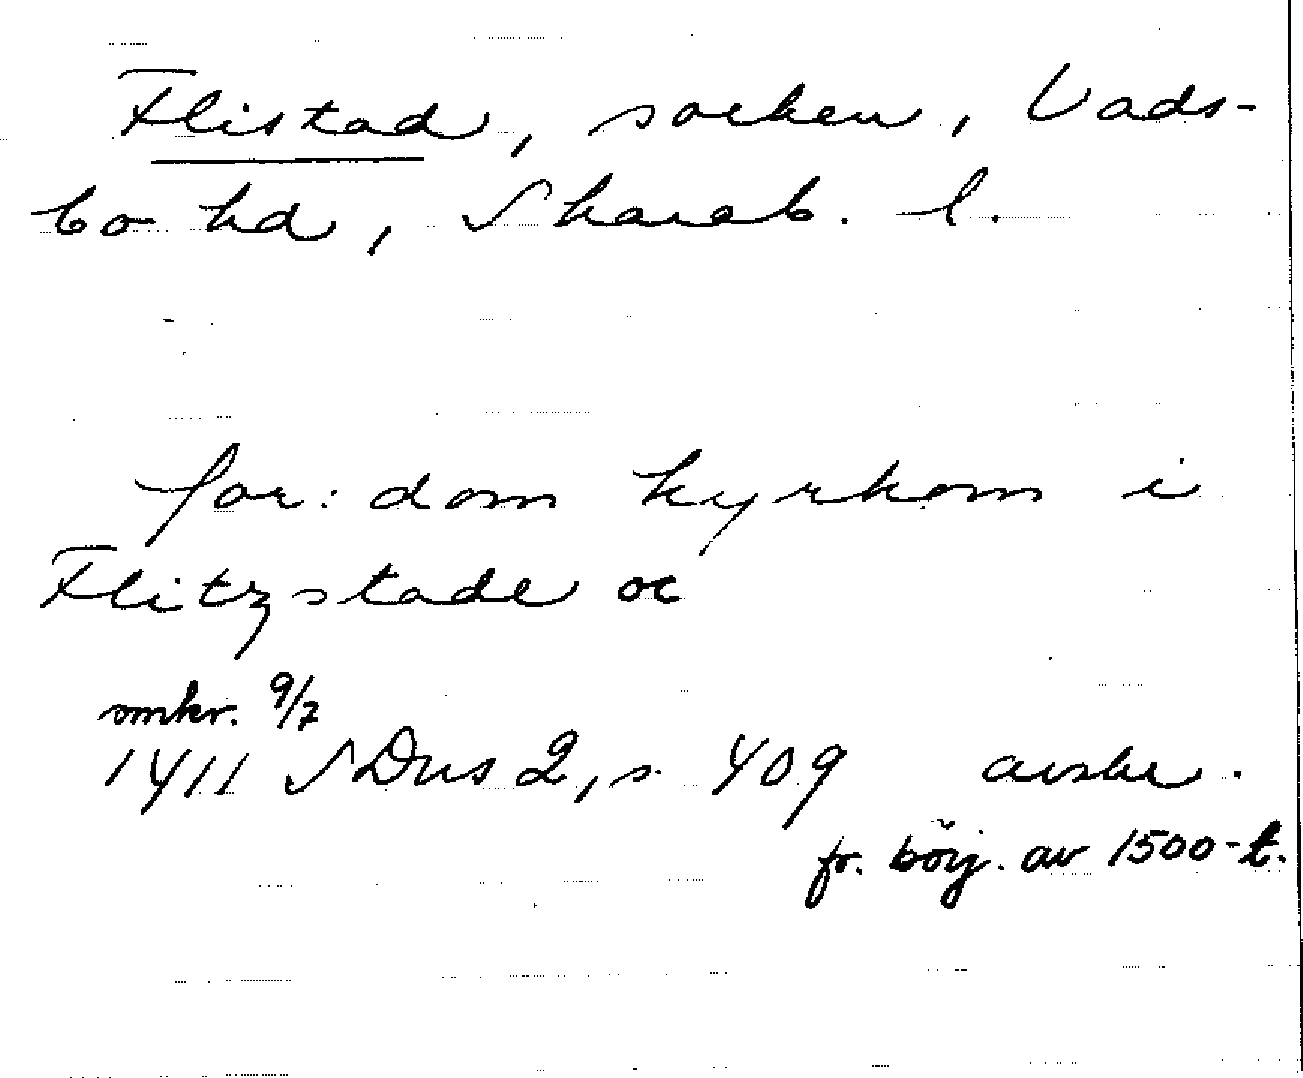 Flistad, socken, Vads-
bo hd, Skarab. l.
for: dom kyrkom i
Flitzstade oc
omkr. 9/7
1411 SDns 2, s. 409 avskr.
fr. börj. av 1500-t.